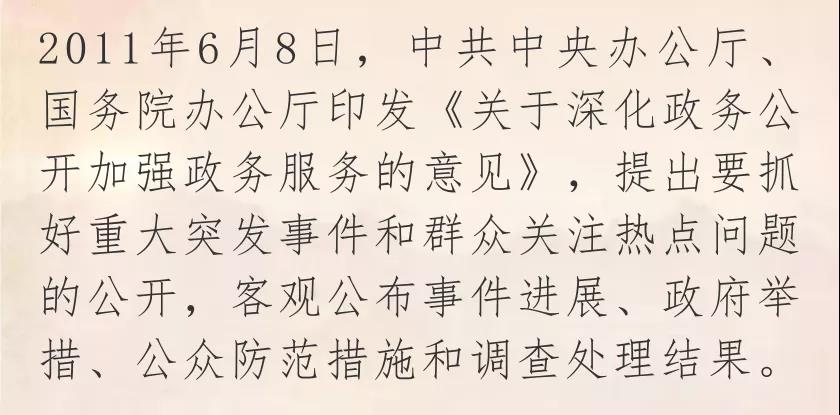 2011年6月8日，中共中央办公厅、
国务院办公厅印发《关于深化政务公
开加强政务服务的意见》，提出要抓
好重大突发事件和群众关注热点问题
的公开，客观公布事件进展、政府举
措、公众防范措施和调查处理结果。